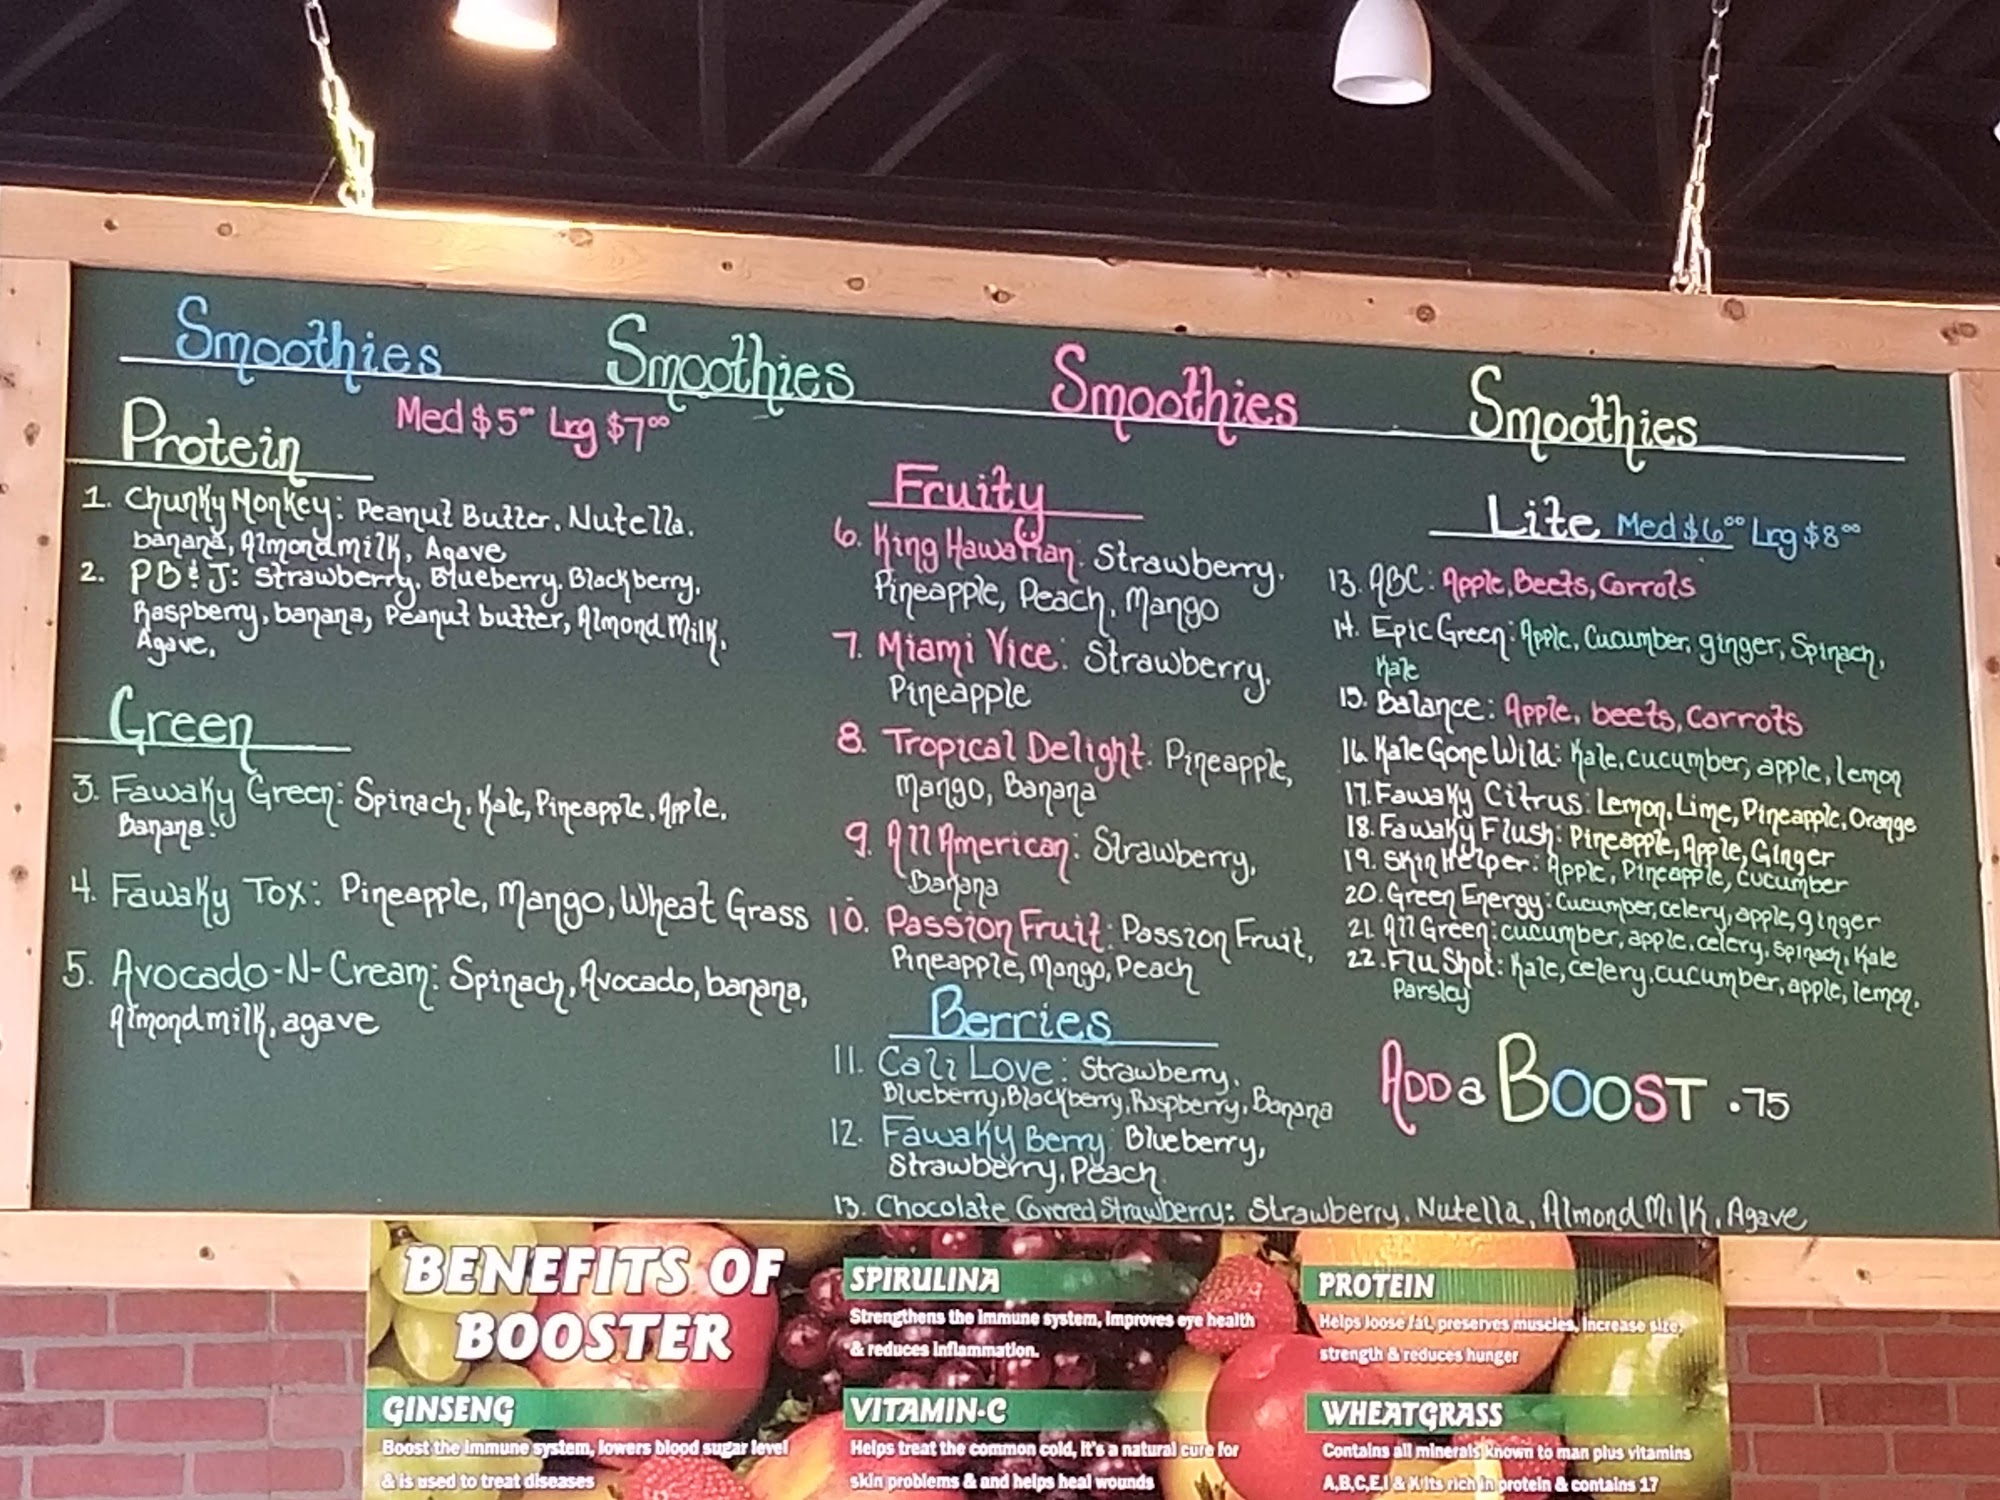 Smoothies Smoothies Smoothies Smoothies
Protein Med $5⁰⁰ Lrg $7⁰⁰
1. Chunky Monkey: Peanut Butter, Nutella,
banana, Almond milk, Agave
2. PB & J: Strawberry, Blueberry, Blackberry,
Raspberry, banana, Peanut butter, Almond Milk,
Agave,
Green
3. Fawaky Green: Spinach, Kale, Pineapple, Apple,
Banana.
4. Fawaky Tox: Pineapple, Mango, Wheat Grass
5. Avocado-N-Cream: Spinach, Avocado, banana,
Almond milk, agave
Fruity
6. King Hawaiian: Strawberry,
Pineapple, Peach, Mango
7. Miami Vice: Strawberry,
Pineapple
8. Tropical Delight: Pineapple,
Mango, Banana
9. All American: Strawberry,
Banana
10. Passion Fruit: Passion Fruit,
Pineapple, Mango, Peach
Berries
11. Cali Love: Strawberry,
Blueberry, Blackberry, Raspberry, Banana
12. Fawaky Berry: Blueberry,
Strawberry, Peach
13. Chocolate Covered Strawberry: Strawberry, Nutella, Almond Milk, Agave
Lite Med $6⁰⁰ Lrg $8⁰⁰
13. ABC: Apple, Beets, Carrots
14. Epic Green: Apple, Cucumber, ginger, Spinach,
Kale
15. Balance: Apple, beets, Carrots
16. Kale Gone Wild: Kale, cucumber, apple, lemon
17. Fawaky Citrus: Lemon, Lime, Pineapple, Orange
18. Fawaky Flush: Pineapple, Apple, Ginger
19. Skin Helper: Apple, Pineapple, cucumber
20. Green Energy: Cucumber, celery, apple, ginger
21. All Green: cucumber, apple, celery, spinach, Kale
22. Flu Shot: Kale, celery, cucumber, apple, lemon,
Parsley
ADD a BOOST .75
BENEFITS OF
BOOSTER
GINSENG
Boost the immune system, lowers blood sugar level
& is used to treat diseases
SPIRULINA
Strengthens the immune system, improves eye health
& reduces inflammation.
VITAMIN-C
Helps treat the common cold, it's a natural cure for
skin problems & and helps heal wounds
PROTEIN
Helps loose fat, preserves muscles, increase size,
strength & reduces hunger
WHEATGRASS
Contains all minerals known to man plus vitamins
A,B,C,E,I & K its rich in protein & contains 17